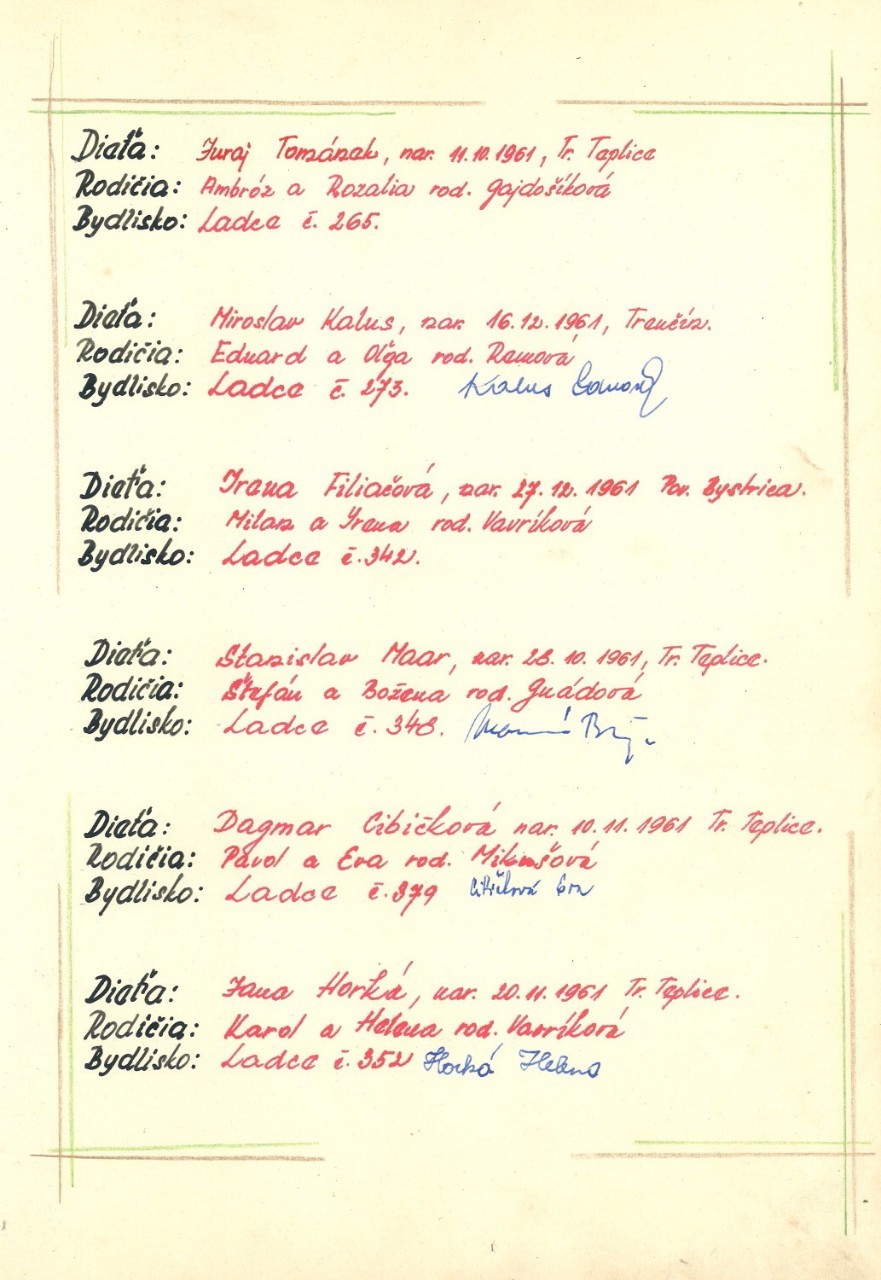 Dieťa: Juraj Tomának, nar. 11.10.1961, Tr. Teplice
Rodičia: Ambróz a Rozalia rod. Gajdošíková
Bydlisko: Ladce č. 265.
Dieťa: Miroslav Kalus, nar. 16.12.1961, Trenčín.
Rodičia: Eduard a Oľga rod.
Bydlisko: Ladce č. 273. Kalus
Dieťa: Irena Filiačová, nar. 27.12.1961 Pov. Bystrica.
Rodičia: Milan a Irena rod. Vavríková
Bydlisko: Ladce č. 342.
Dieťa: Stanislav Maar, nar. 28.10.1961, Tr. Teplice.
Rodičia: Štefán a Božena rod. Gnádová
Bydlisko: Ladce č. 348.
Dieťa: Dagmar Cibičková nar. 10.11.1961 Tr. Teplice.
Rodičia: Pavol a Eva rod. Mikušová
Bydlisko: Ladce č. 379 Cibičková Eva
Dieťa: Jana Horká, nar. 20.11.1961 Tr. Teplice.
Rodičia: Karol a Helena rod. Vavríková
Bydlisko: Ladce č. 352 Horká Helena